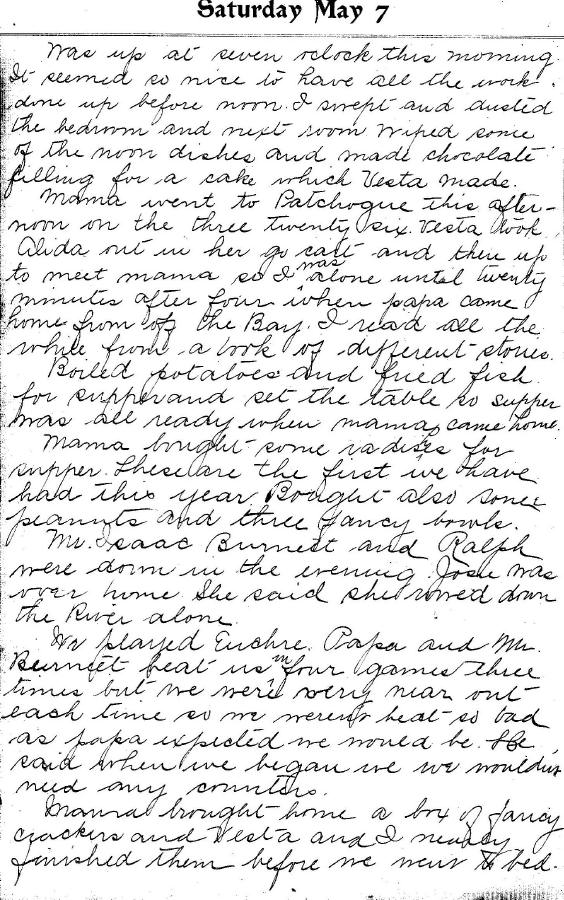 Saturday May 7
Was up at seven oclock this morning
It seemed so nice to have all the work
done up before noon. I swept and dusted
the bedroom and next room wiped some
of the noon dishes and made chocolate
filling for a cake which Vesta made.
Mama went to Patchogue this after-
noon on the three twenty six. Vesta took
Alida out in her go cart and then up
to meet mama so I was alone until twenty
minutes after four when papa came
home from off the Bay. I read all the
while from a book of different stories.
Boiled potatoes and fried fish
for supper and set the table so supper
was all ready when mama came home.
Mama bought some radises for
supper. These are the first we have
had this year. Bought also some
peanuts and three fancy bowls.
Mr. Isaac Burnett and Ralph
were down in the evening. Josie was
over home She said she rowed down
the River alone
We played Euchre. Papa and Mr.
Burnett beat us in four games three
times but we were very near out
each time so we weren't beat so bad
as papa expected we would be. He
said when we began we we wouldn't
need any counters.
Mama brought home a box of fancy
crackers and Vesta and I nearly
finished them before we went to bed.